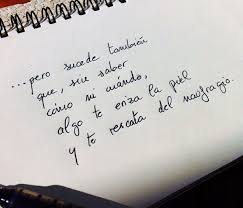 ...pero sucede también
que, sin saber
cómo ni cuándo,
algo te eriza la piel
y te rescata del naufragio.